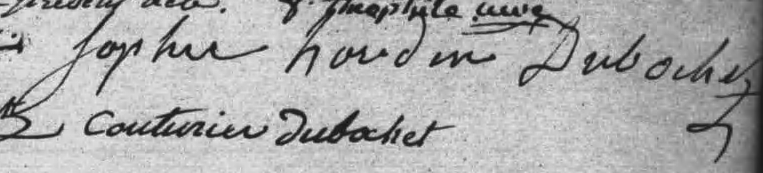 théophile
Sophie houdin Dubochet
Couturier Dubochet